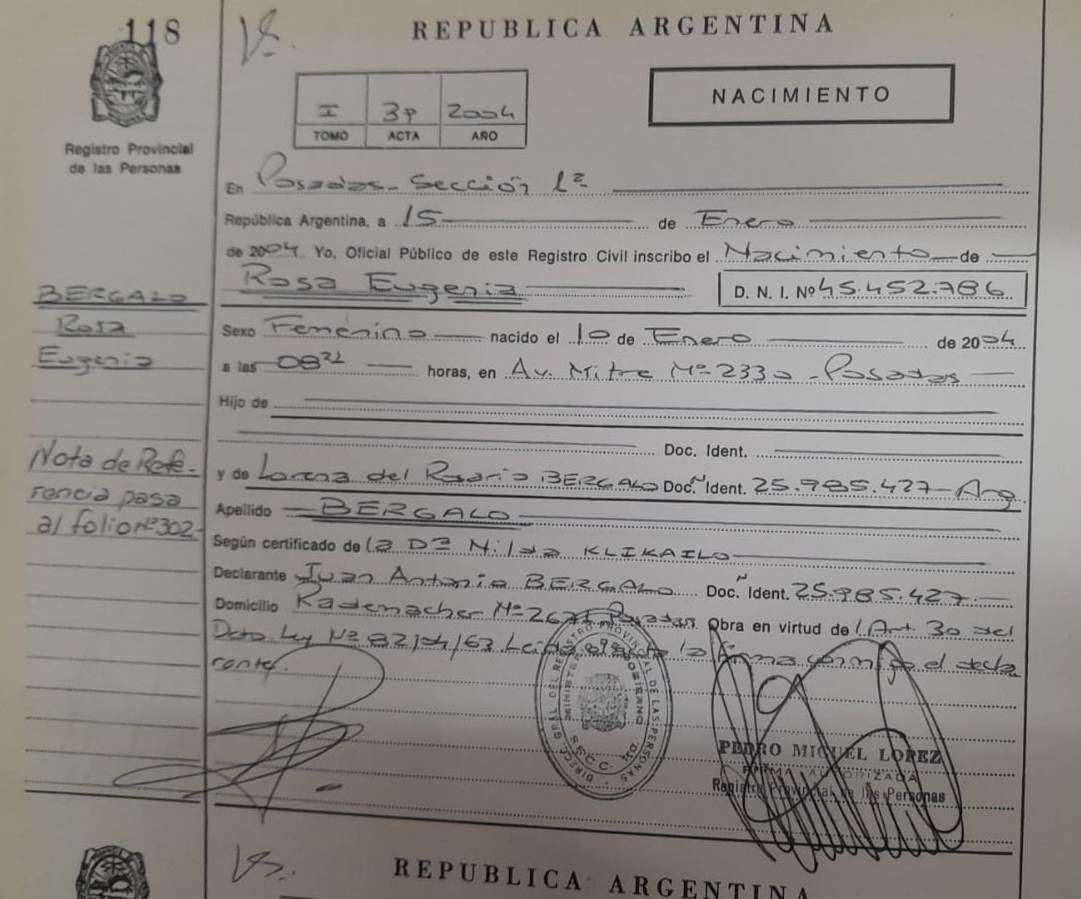 118
REPUBLICA ARGENTINA
I 39 2004
TOMO ACTA AÑO
NACIMIENTO
Registro Provincial
de las Personas
En Posadas - Sección 1ª
República Argentina, a 15 de Enero
de 2004 Yo, Oficial Público de este Registro Civil inscribo el Nacimiento de
Rosa Eugenia D. N. I. Nº 45.452.786
Sexo Femenino nacido el 10 de Enero de 2004
a las 08²² horas, en Av. Mitre Nº 2330 - Posadas
Hijo de
Doc. Ident.
y de Lorena del Rosario BERGALO Doc. Ident. 25.985.427 - Arg.
Apellido BERGALO
Según certificado de la Dª Nilda KLIKAILO
Declarante Juan Antonio BERGALO Doc. Ident. 25.985.427
Domicilio Rademacher Nº Posadas Obra en virtud de l Art 30 del
Dcto Ley Nº 8204/63 Leida el acta la firma conmigo el decla
rante.
BERGALO
Rosa
Eugenia
Nota de Refe-
rencia pasa
al folio Nº 302-
DIRECC. GRAL. DEL REGISTRO PROVINCIAL DE LAS PERSONAS
PEDRO MIGUEL LOPEZ
FIRMA AUTORIZADA
Registro Provincial de las Personas
REPUBLICA ARGENTINA